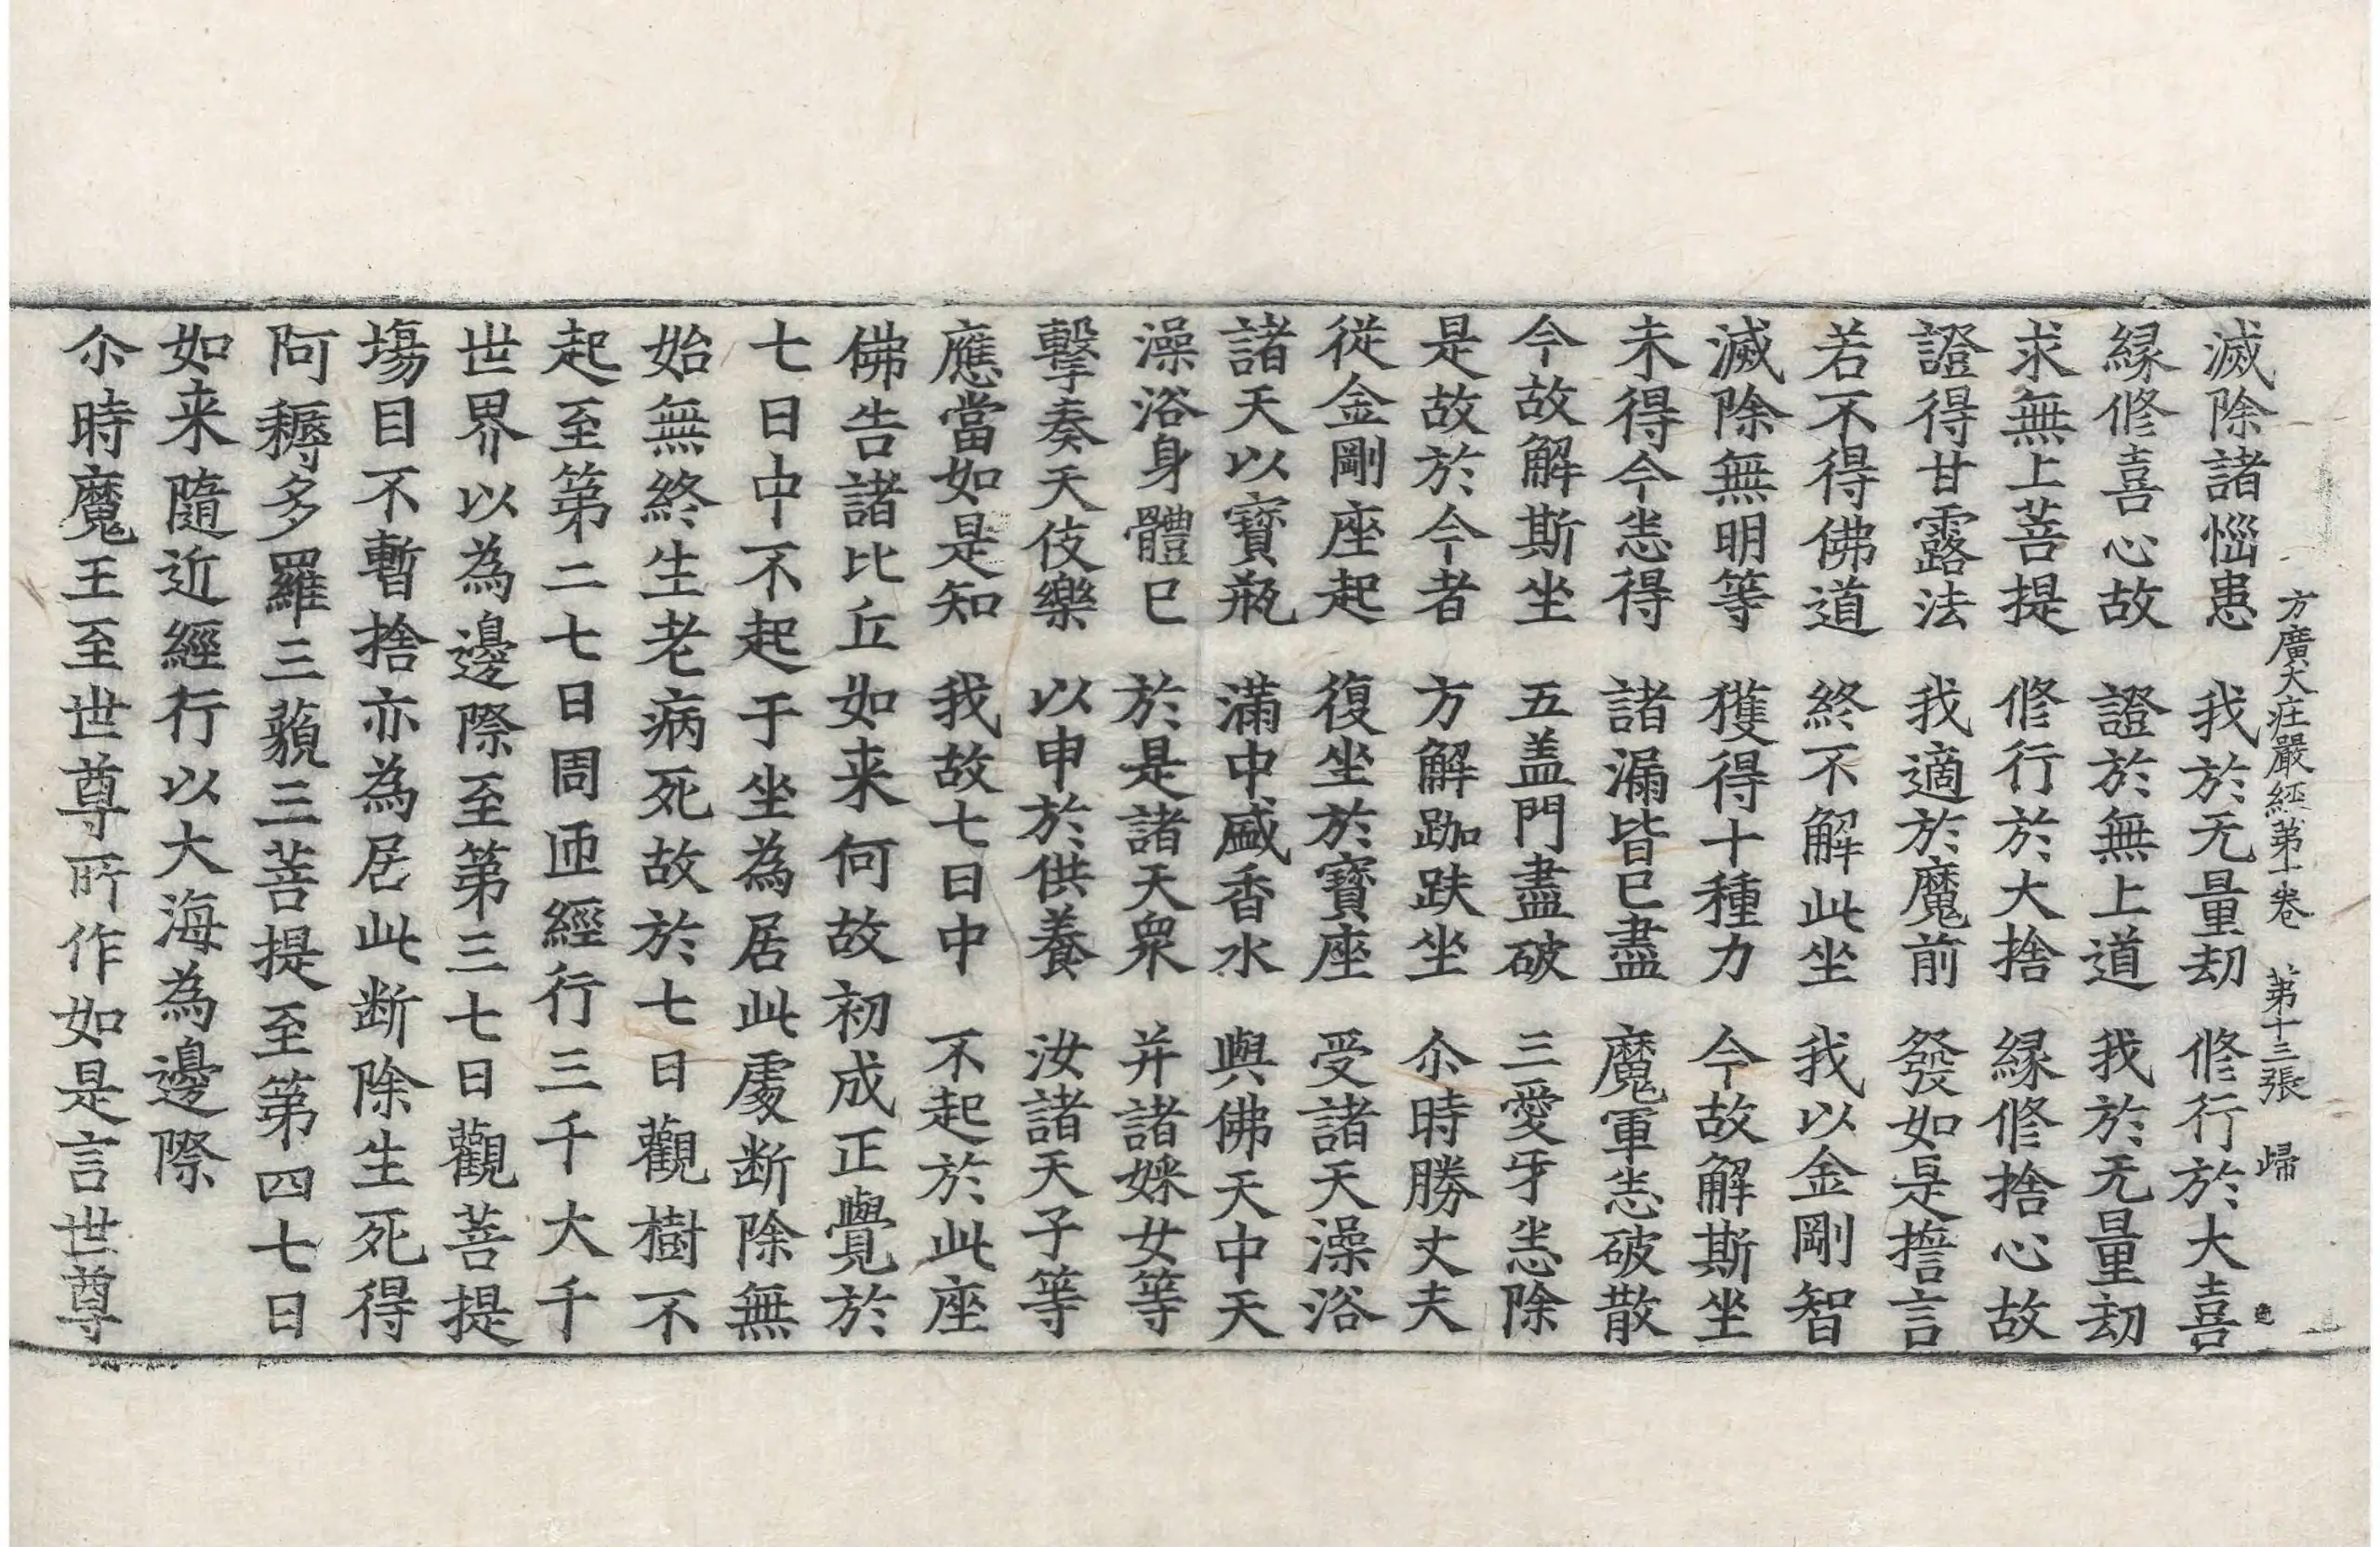 方廣大莊嚴經第十卷　第十三張　歸
滅除諸惱患　我於无量劫　修行於大喜
縁修喜心故　證於無上道　我於无量劫
求無上菩提　修行於大捨　縁修捨心故
證得甘露法　我適於魔前　發如是擔言
若不得佛道　終不解此坐　我以金剛智
滅除無明等　獲得十種力　今故解斯坐
未得今悉得　諸漏皆已盡　魔軍悉破散
今故解斯坐　五盖門盡破　三愛牙悉除
是故於今者　方解跏趺坐　尒時勝丈夫
從金剛座起　復坐於寶座　受諸天澡浴
諸天以寶瓶　滿中盛香水　與佛天中天
澡浴身體已　於是諸天衆　并諸婇女等
擊奏天伎樂　以申於供養　汝諸天子等
應當如是知　我故七日中　不起於此座
佛告諸比丘如来何故初成正覺於
七日中不起于坐為居此處断除無
始無終生老病死故於七日觀樹不
起至第二七日周匝經行三千大千
世界以為邊際至第三七日觀菩提
塲目不暫捨亦為居此断除生死得
阿耨多羅三藐三菩提至第四七日
如来隨近經行以大海為邊際
尒時魔王至世尊所作如是言世尊